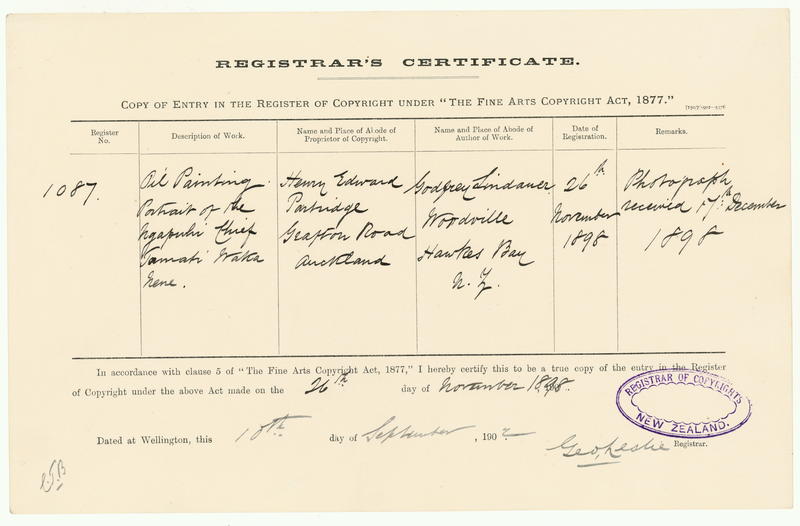 REGISTRAR'S CERTIFICATE.
COPY OF ENTRY IN THE REGISTER OF COPYRIGHT UNDER "THE FINE ARTS COPYRIGHT ACT, 1877."
Register No.
Description of Work.
Name and Place of Abode of Proprietor of Copyright.
Name and Place of Abode of Author of Work.
Date of Registration.
Remarks.
1087.
Oil Painting.
Portrait of the
Ngapuhi Chief
Tamati Waka
Nene.
Henry Edward
Partridge
Grafton Road
Auckland
Godfrey Lindauer
Woodville
Hawkes Bay
N. Z.
26th
November
1898
Photograph
received 17th December
1898
In accordance with clause 5 of "The Fine Arts Copyright Act, 1877," I hereby certify this to be a true copy of the entry in the Register
of Copyright under the above Act made on the 26th day of November 1898.
REGISTRAR OF COPYRIGHTS
NEW ZEALAND.
Dated at Wellington, this 10th day of September, 1902
Geo, Leslie Registrar.